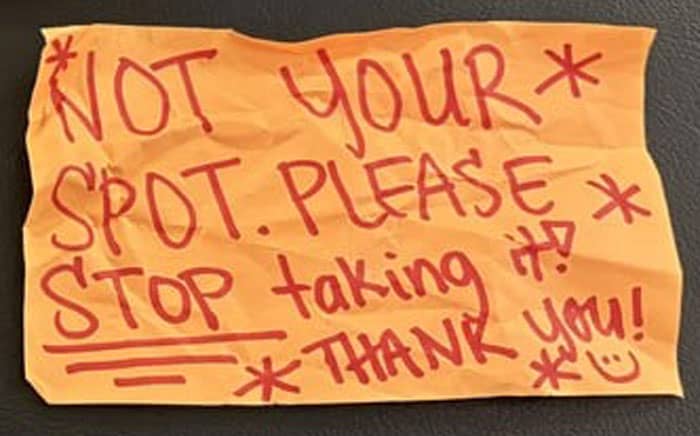 *NOT YOUR*
SPOT. PLEASE *
STOP taking it!
*THANK YOU!
* :)